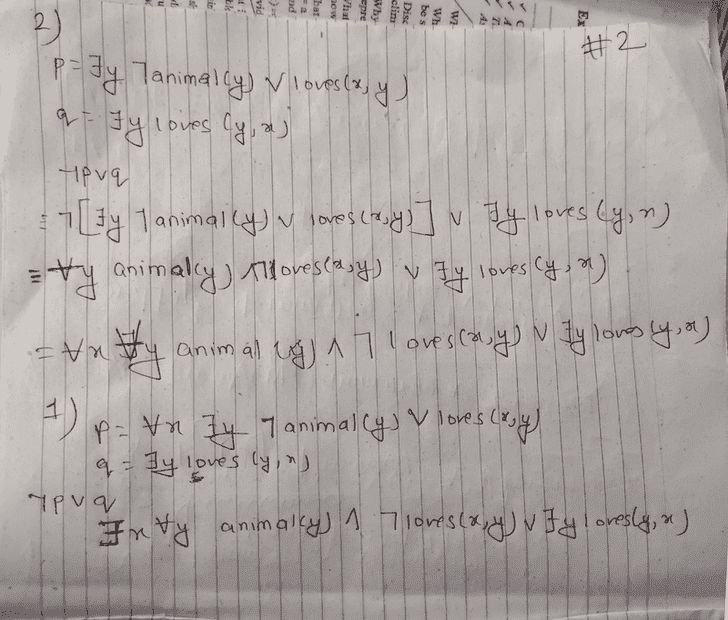 #2
2)
p = ∃y ¬animal(y) ∨ loves(x,y)
q = ∃y loves(y,x)
¬p∨q
= ¬[∃y ¬animal(y) ∨ loves(x,y)] ∨ ∃y loves(y,x)
≡ ∀y animal(y) ∧ ¬loves(x,y) ∨ ∃y loves(y,x)
= ∀x ∀y animal(y) ∧ ¬loves(x,y) ∨ ∃y loves(y,x)
1) p = ∀x ∃y ¬animal(y) ∨ loves(x,y)
q = ∃y loves(y,x)
¬p∨q
∃x ∀y animal(y) ∧ ¬loves(x,y) ∨ ∃y loves(y,x)